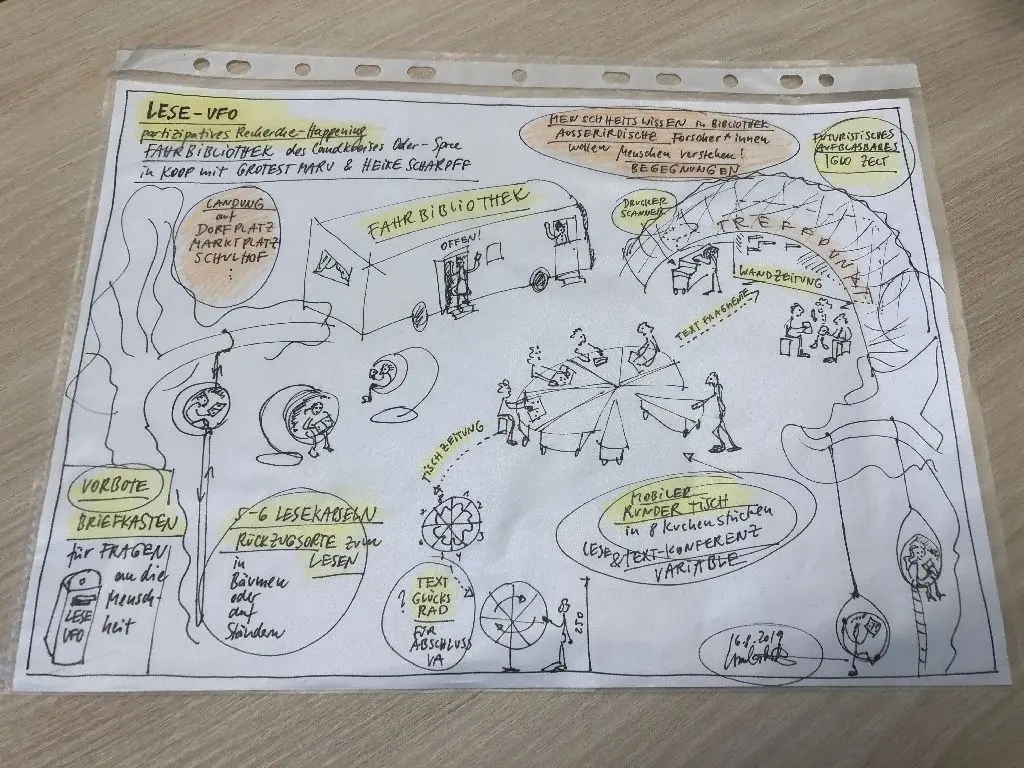 LESE-UFO
partizipatives Recherche-Happening
FAHRBIBLIOTHEK des Landkreises Oder-Spree
in KOOP mit GROTEST MARU & HEIKE SCHARPFF
MENSCHHEITSWISSEN in BIBLIOTHEK
AUSSERIRDISCHE Forscher*innen
wollen Menschen verstehen!
BEGEGNUNGEN
FUTURISTISCHES
AUFBLASBARES
IGLU ZELT
LANDUNG
auf
DORFPLATZ
MARKTPLATZ
SCHULHOF
:
FAHRBIBLIOTHEK
OFFEN!
DRUCKER
SCANNER
TREFFPUNKT
WANDZEITUNG
TEXTFRAGMENTE
TISCHZEITUNG
VORBOTE
BRIEFKASTEN
für FRAGEN
an die
Mensch-
heit
LESE
UFO
5-6 LESEKABELN
RÜCKZUGSORTE zum
LESEN
in
Bäumen
oder
auf
Ständern
?
TEXT
GLÜCKS
RAD
FÜR
ABSCHLUSS
VA
2,50
MOBILER
RUNDER TISCH
in 8 Kuchenstücken
LESE & TEXT-KONFERENZ
VARIABLE
16.8.2019